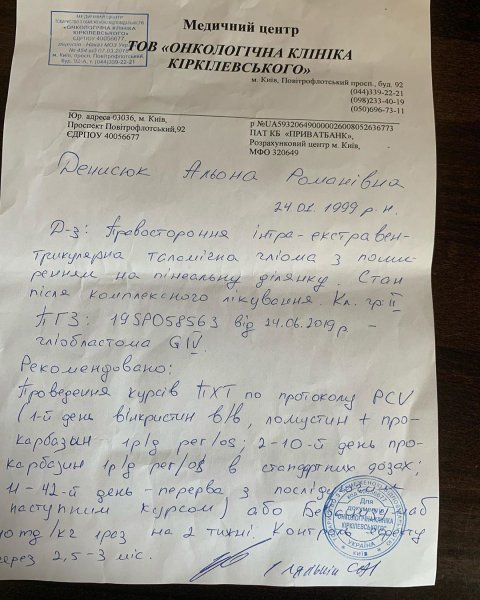 МЕДИЧНИЙ ЦЕНТР
«ОНКОЛОГІЧНА КЛІНІКА
КІРКІЛЕВСЬКОГО»
ЄДРПОУ 40056677,
Медичний центр
ТОВ «ОНКОЛОГІЧНА КЛІНІКА
КІРКІЛЕВСЬКОГО»
м. Київ, Повітрофлотський просп., буд. 92
(044)339-22-21
(098)233-40-19
(050)696-73-11
Юр. адреса 03036, м. Київ,
Проспект Повітрофлотський,92
ЄДРПОУ 40056677
р №UA593206490000026008052636773
ПАТ КБ «ПРИВАТБАНК»,
Розрахунковий центр м. Київ,
МФО 320649
Денисюк Альона Романівна
24.01.1999 р.н.
Д-з: Правостороння інтра-екстравен-
трикулярна таламічна гліома з поши-
ренням на пінеальну ділянку. Стан
після комплексного лікування. Кл. гр. II
ПГЗ: 19SP058563 від 24.06.2019р. –
гліобластома G IV.
Рекомендовано:
Проведення курсів ПХТ по протоколу PCV
(1-й день вінкристин в/в, ломустин + про-
карбазын 1р/д per/os; 2-10-й день про-
карбазин 1р/д per/os в стандартних дозах;
11-42-й день - перерва з
наступним курсом) або
/кг 1раз на 2 тижні. Контроль ефекту
через 2,5-3 міс.
Для
ОНКОЛОГІЧНА КЛІНІКА
КІРКІЛЕВСЬКОГО
УКРАЇНА
КИЇВ